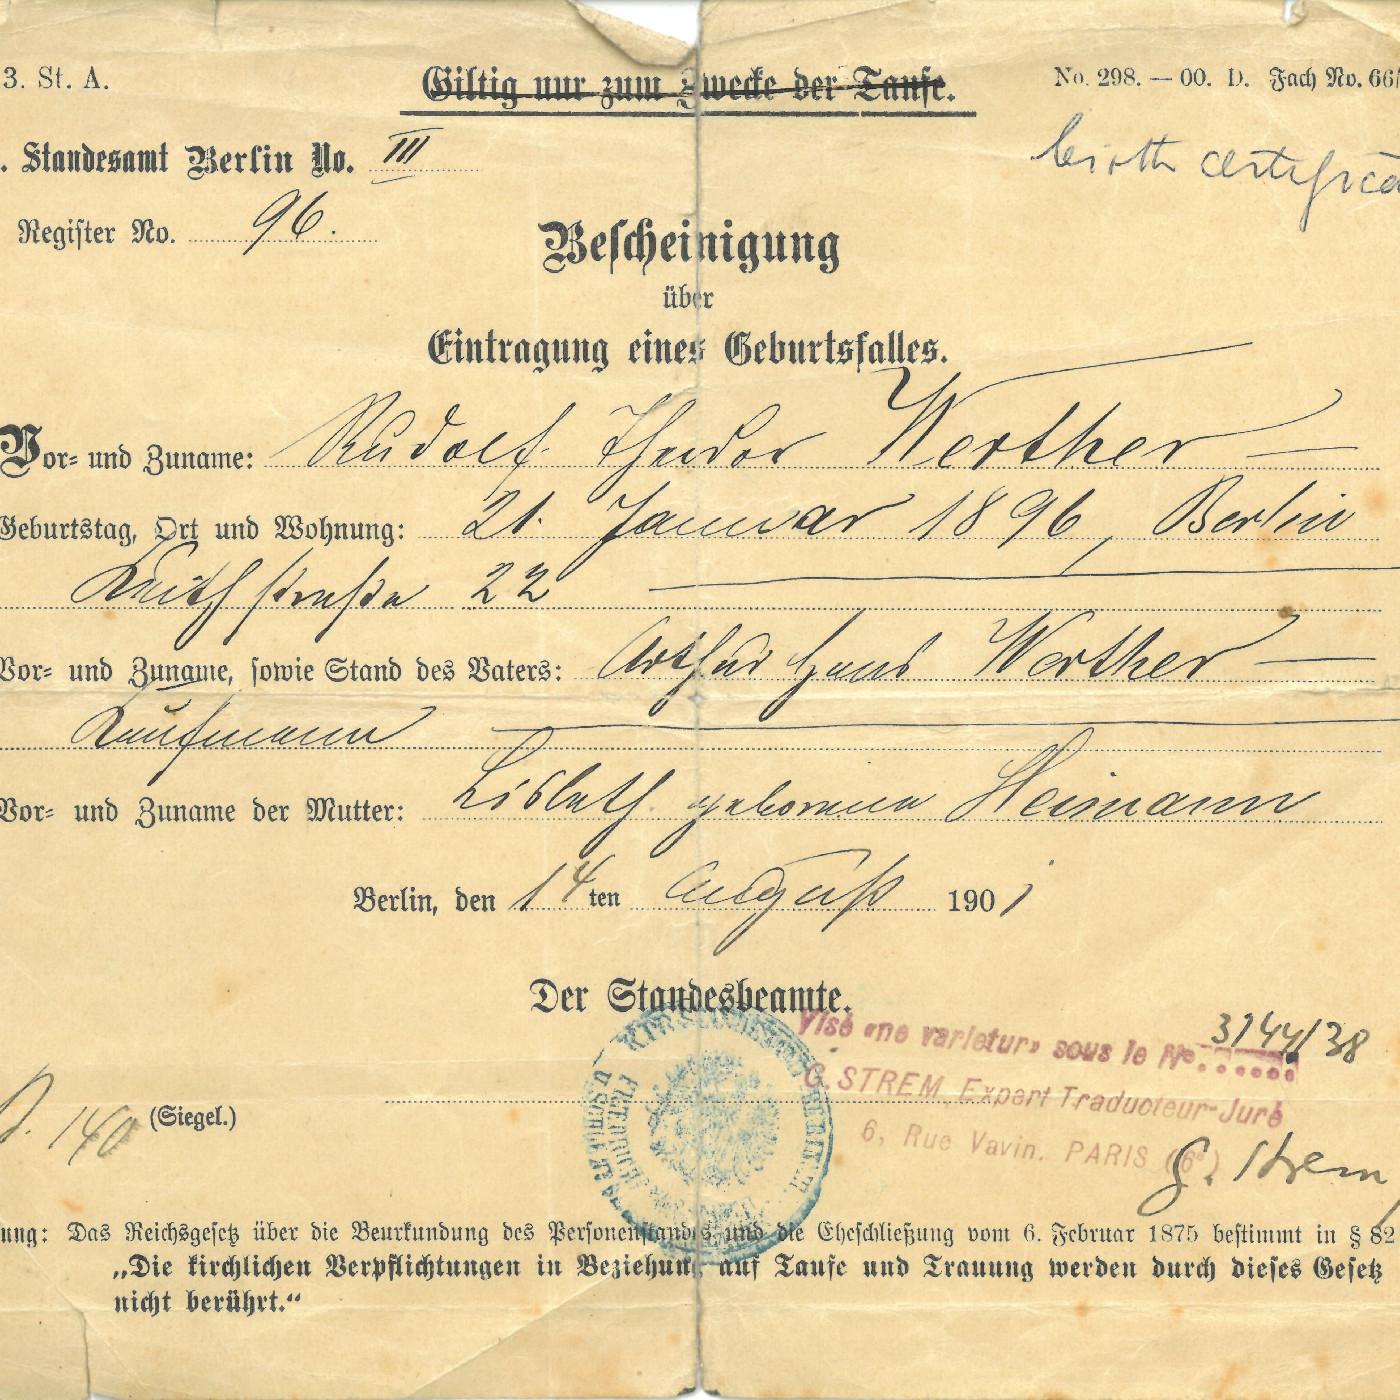 3. St. A.
Giltig nur zum Zwecke der Taufe.
No. 298. — 00. D. Fach No. 66/
birth certifica
. Standesamt Berlin No. III
Register No. 96.
Bescheinigung
über
Eintragung eines Geburtsfalles.
Vor- und Zuname: Rudolf Theodor Werther —
Geburtstag, Ort und Wohnung: 21. Januar 1896, Berlin
Keithstraße 22
Vor- und Zuname, sowie Stand des Vaters: Arthur Hans Werther —
Kaufmann
Vor- und Zuname der Mutter: Lisbeth geborene Heimann
Berlin, den 14ten August 1901
Der Standesbeamte.
Visé «ne varietur» sous le No. 3144/38
G. STREM, Expert Traducteur-Juré
6, Rue Vavin. PARIS (6e)
G. Strem
140 (Siegel.)
ung: Das Reichsgesetz über die Beurkundung des Personenstandes und die Eheschließung vom 6. Februar 1875 bestimmt in § 82
„Die kirchlichen Verpflichtungen in Beziehung auf Taufe und Trauung werden durch dieses Gesetz
nicht berührt.“